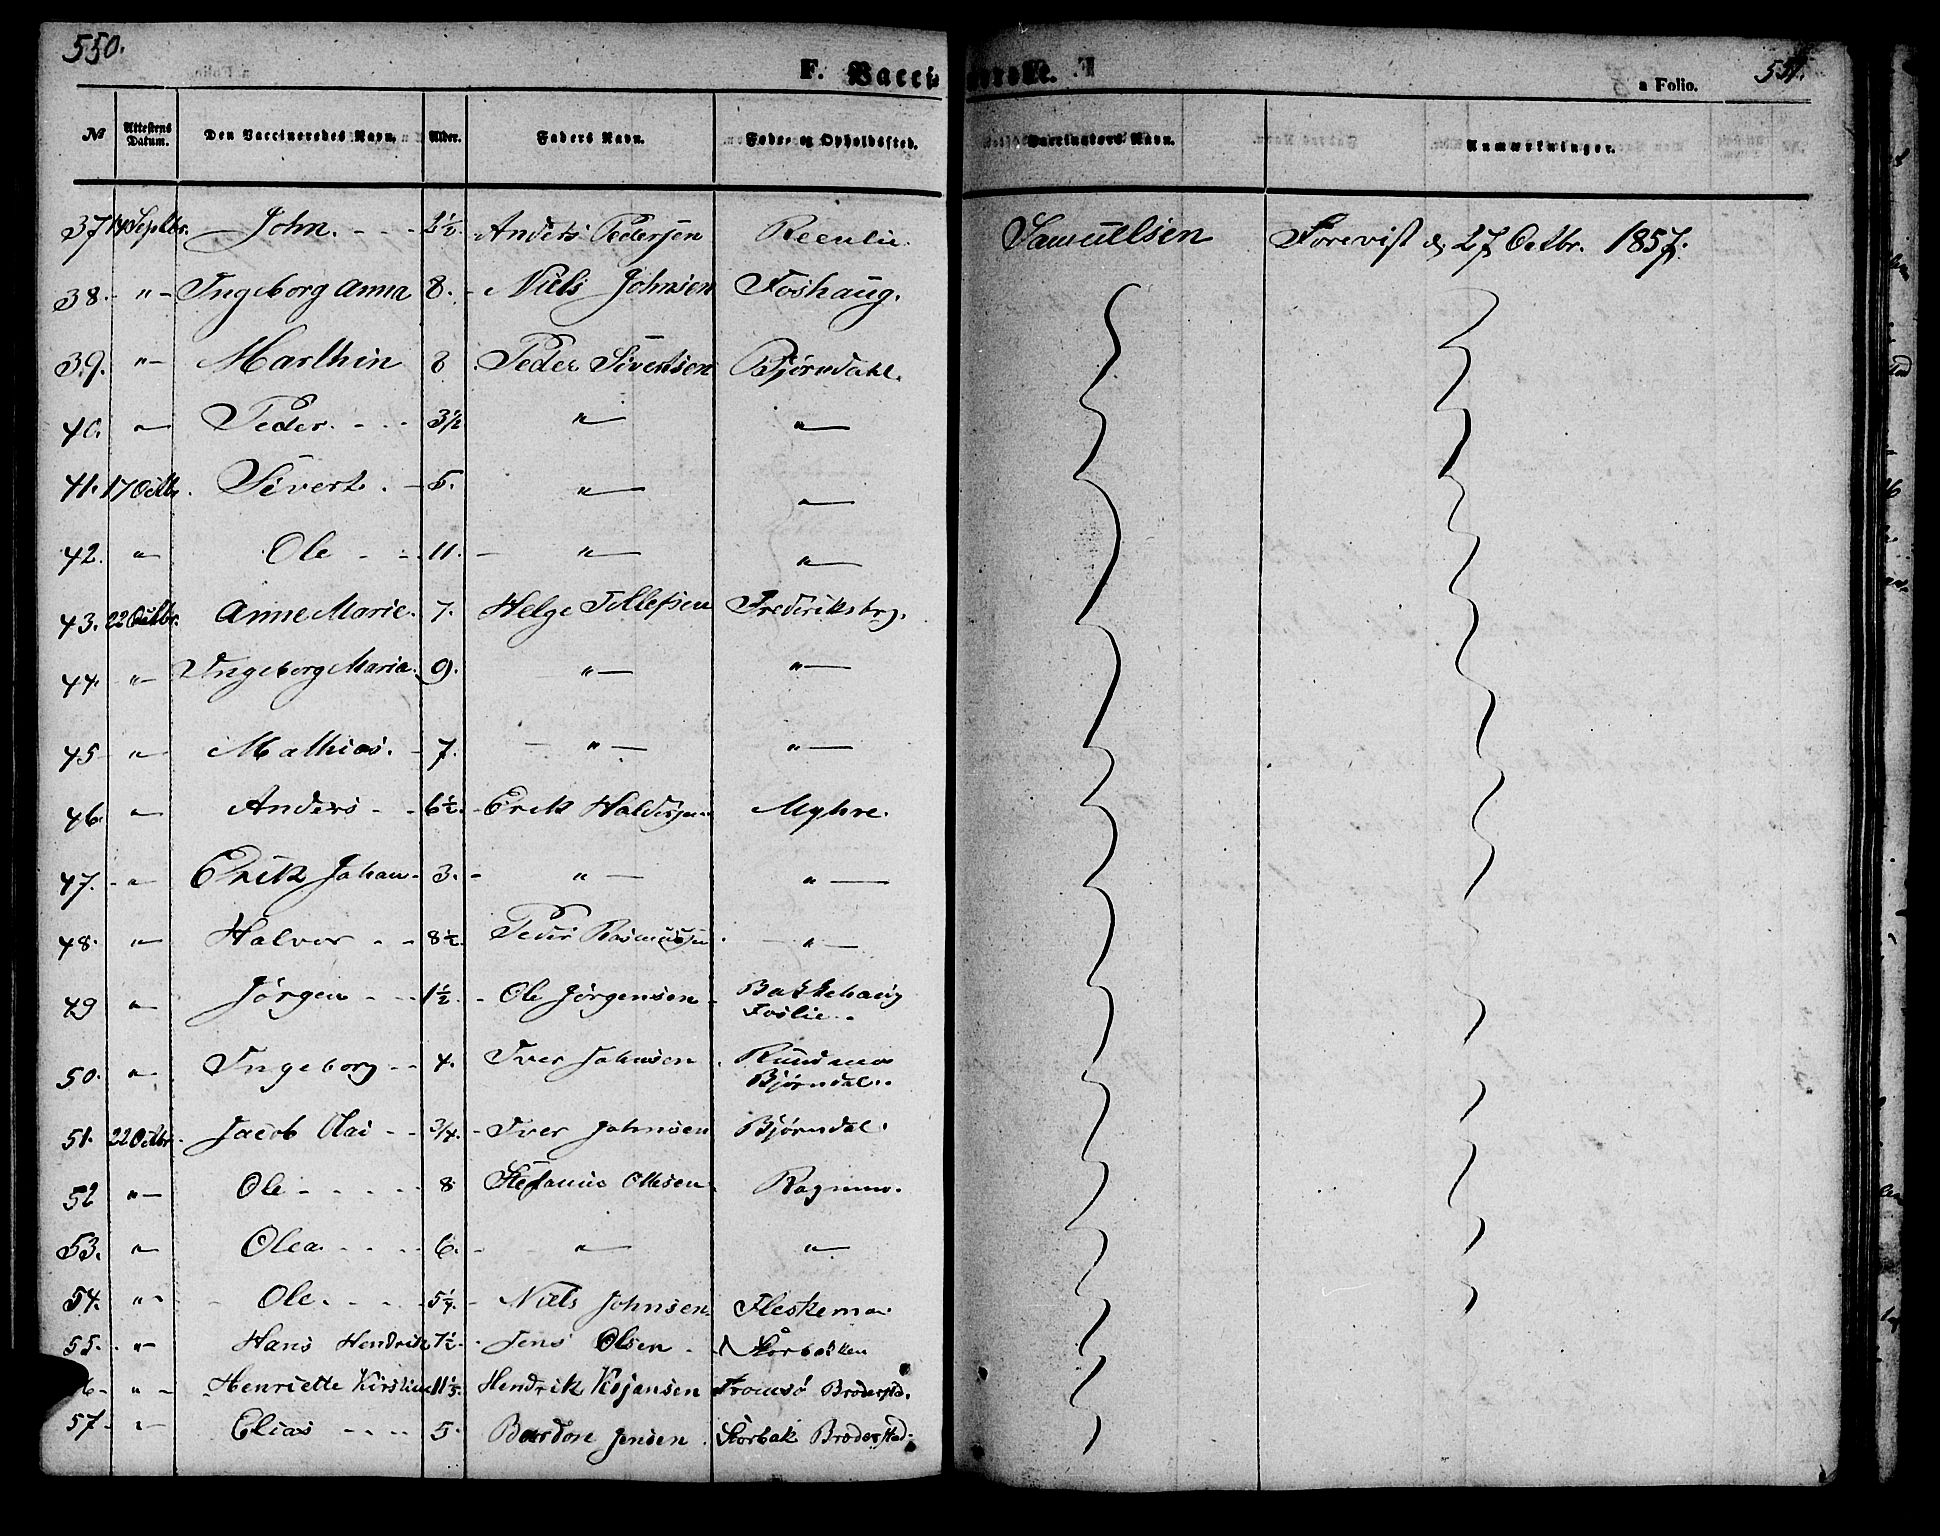 550.
F. Vacci
nerede.
551.
a Folio.
№ Attestens Datum. Den Vaccineredes Navn. Alder. Faders Navn. Føde- og Opholdssted. Vaccinators Navn. Anmærkninger.
37 14 Septbr. John. - - - 2½. Anders Pedersen Reenlie. Samuelsen Forevist d. 27 Octbr. 1857.
38. - " - Ingeborg Anna 8. - Niels Johnsen Foshaug.
39. " - Marthin 8 Peder Sivertsen Bjørndahl.
40. " - Peder. - - - 3½ " - " -
41. 17 Octbr. Sivert. - 5. " - " -
42. " - Ole - - - 11. - " - " -
43. 22 Octbr. Anne Marie. 7. Helge Tollefsen Frederiksbrg.
44. " - Ingeborg Maria. 9. " - " -
45 " - Mathias. - 7. - " - " -
46. " - Anders - - 6½. - Erik Haldorsen Myhre.
47. - " - Erik Johan - 3. - " - " -
48. " - Halvor - - 8½. Peder Rasmussen - " -
49 " - Jørgen - - - 1½. - Ole Jørgensen - Bakkehaug
Foslie.
50. " - Ingeborg - - 4. Iver Johnsen Rundmo
Bjørndal.
51. 22 Octbr. Jacob Olai - - 3/4. - Iver Johnsen Bjørndal.
52 " - Ole - - - - - 8 Stefanus Ottesen Rognmo.
53. " - Olea. - - - - 6. - " - " -
54. " - - Ole. - - - - 5¼. - Niels Johnsen. Fleskemo.
55. - " - Hans Hendrik 7½. - Jens Olsen - Storbakken
6 - " - - Henriette Kirstine 11½. Hendrik Tromsø Brodersted.
57 - " - Elias - - - - 5. Bardon Jensen. Storbak Brodersted.